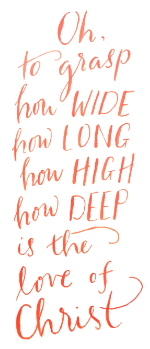 Oh,
to grasp
how WIDE
how LONG
how HIGH
how DEEP
is the
love of
Christ